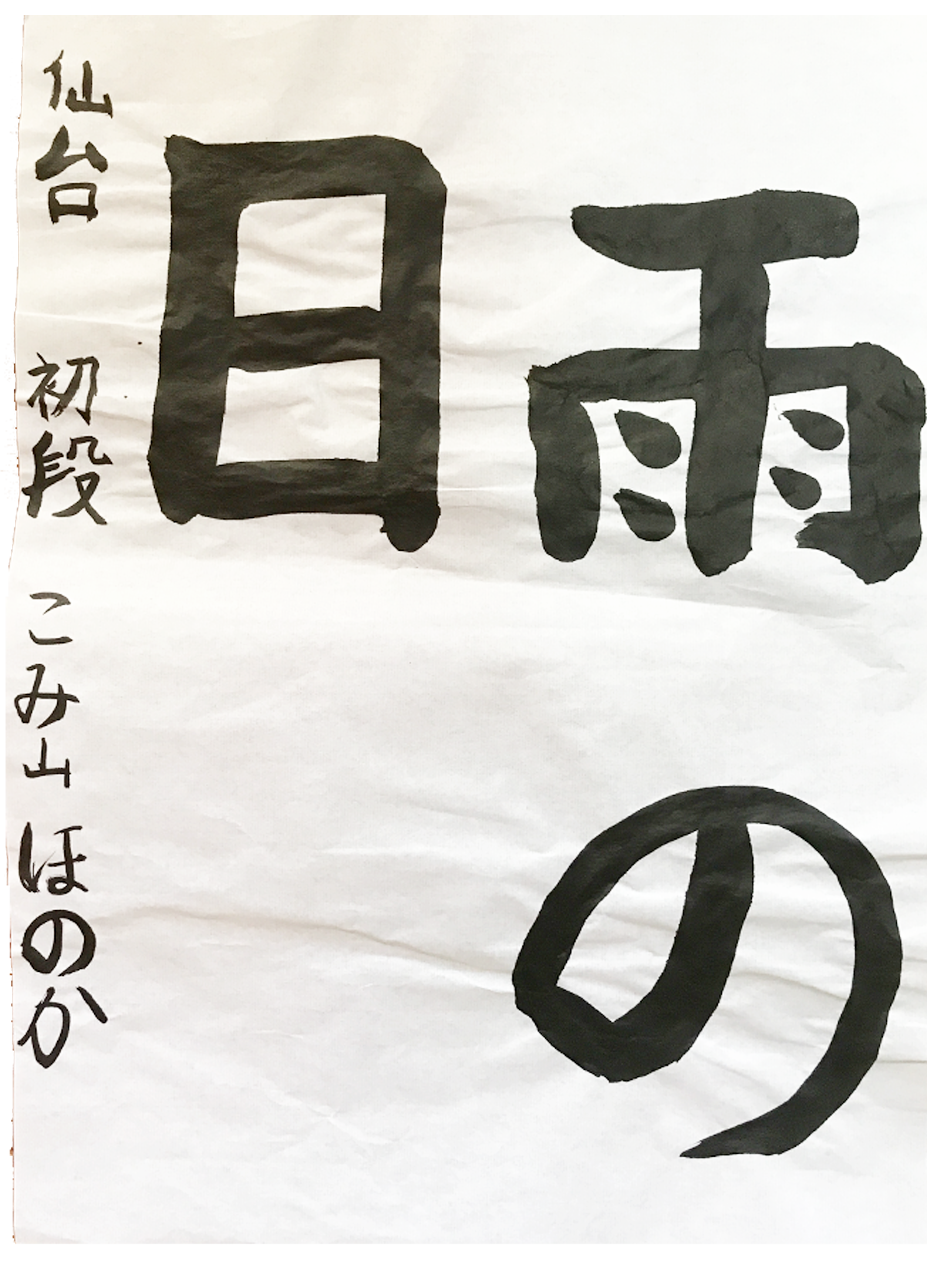 雨の
日
仙台 初段 こみ山 ほのか